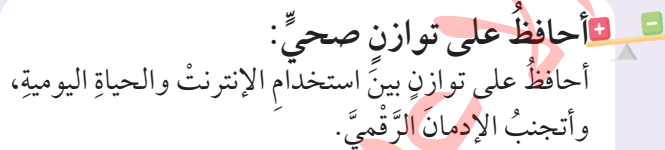 أحافظُ على توازنٍ صحيٍّ:
أحافظُ على توازنٍ بينَ استخدامِ الإنترنتْ والحياةِ اليوميةِ،
وأتجنبُ الإدمانَ الرَّقْميَّ.